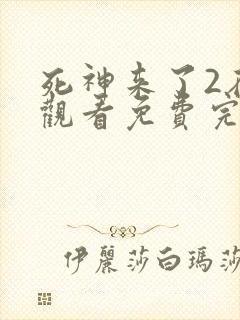 死神来了2
觀看免費完
伊麗莎白瑪莎